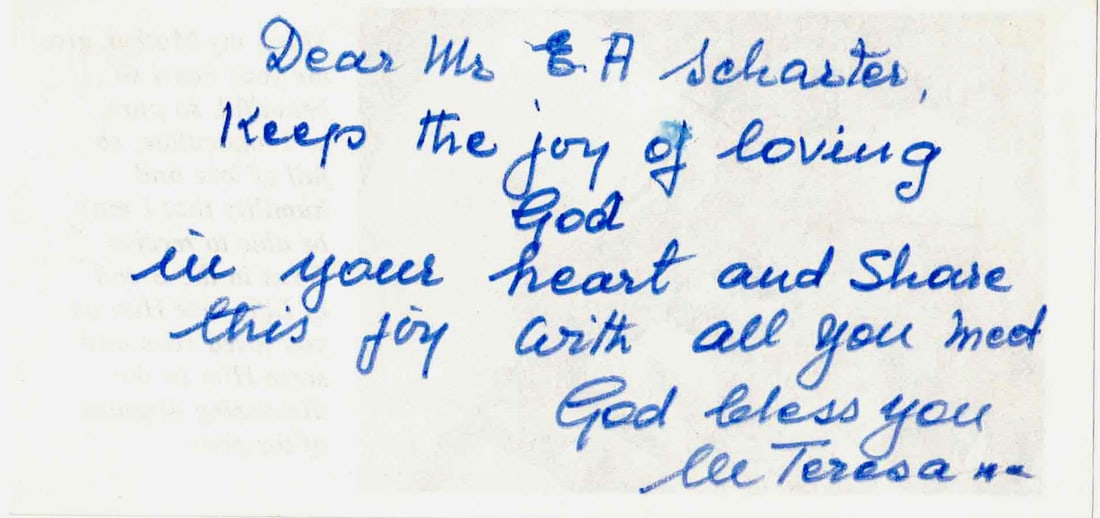 Dear Mr E.A Scharter,
Keep the joy of loving
God
in your heart and Share
this joy with all you meet
God bless you
M Teresa mc